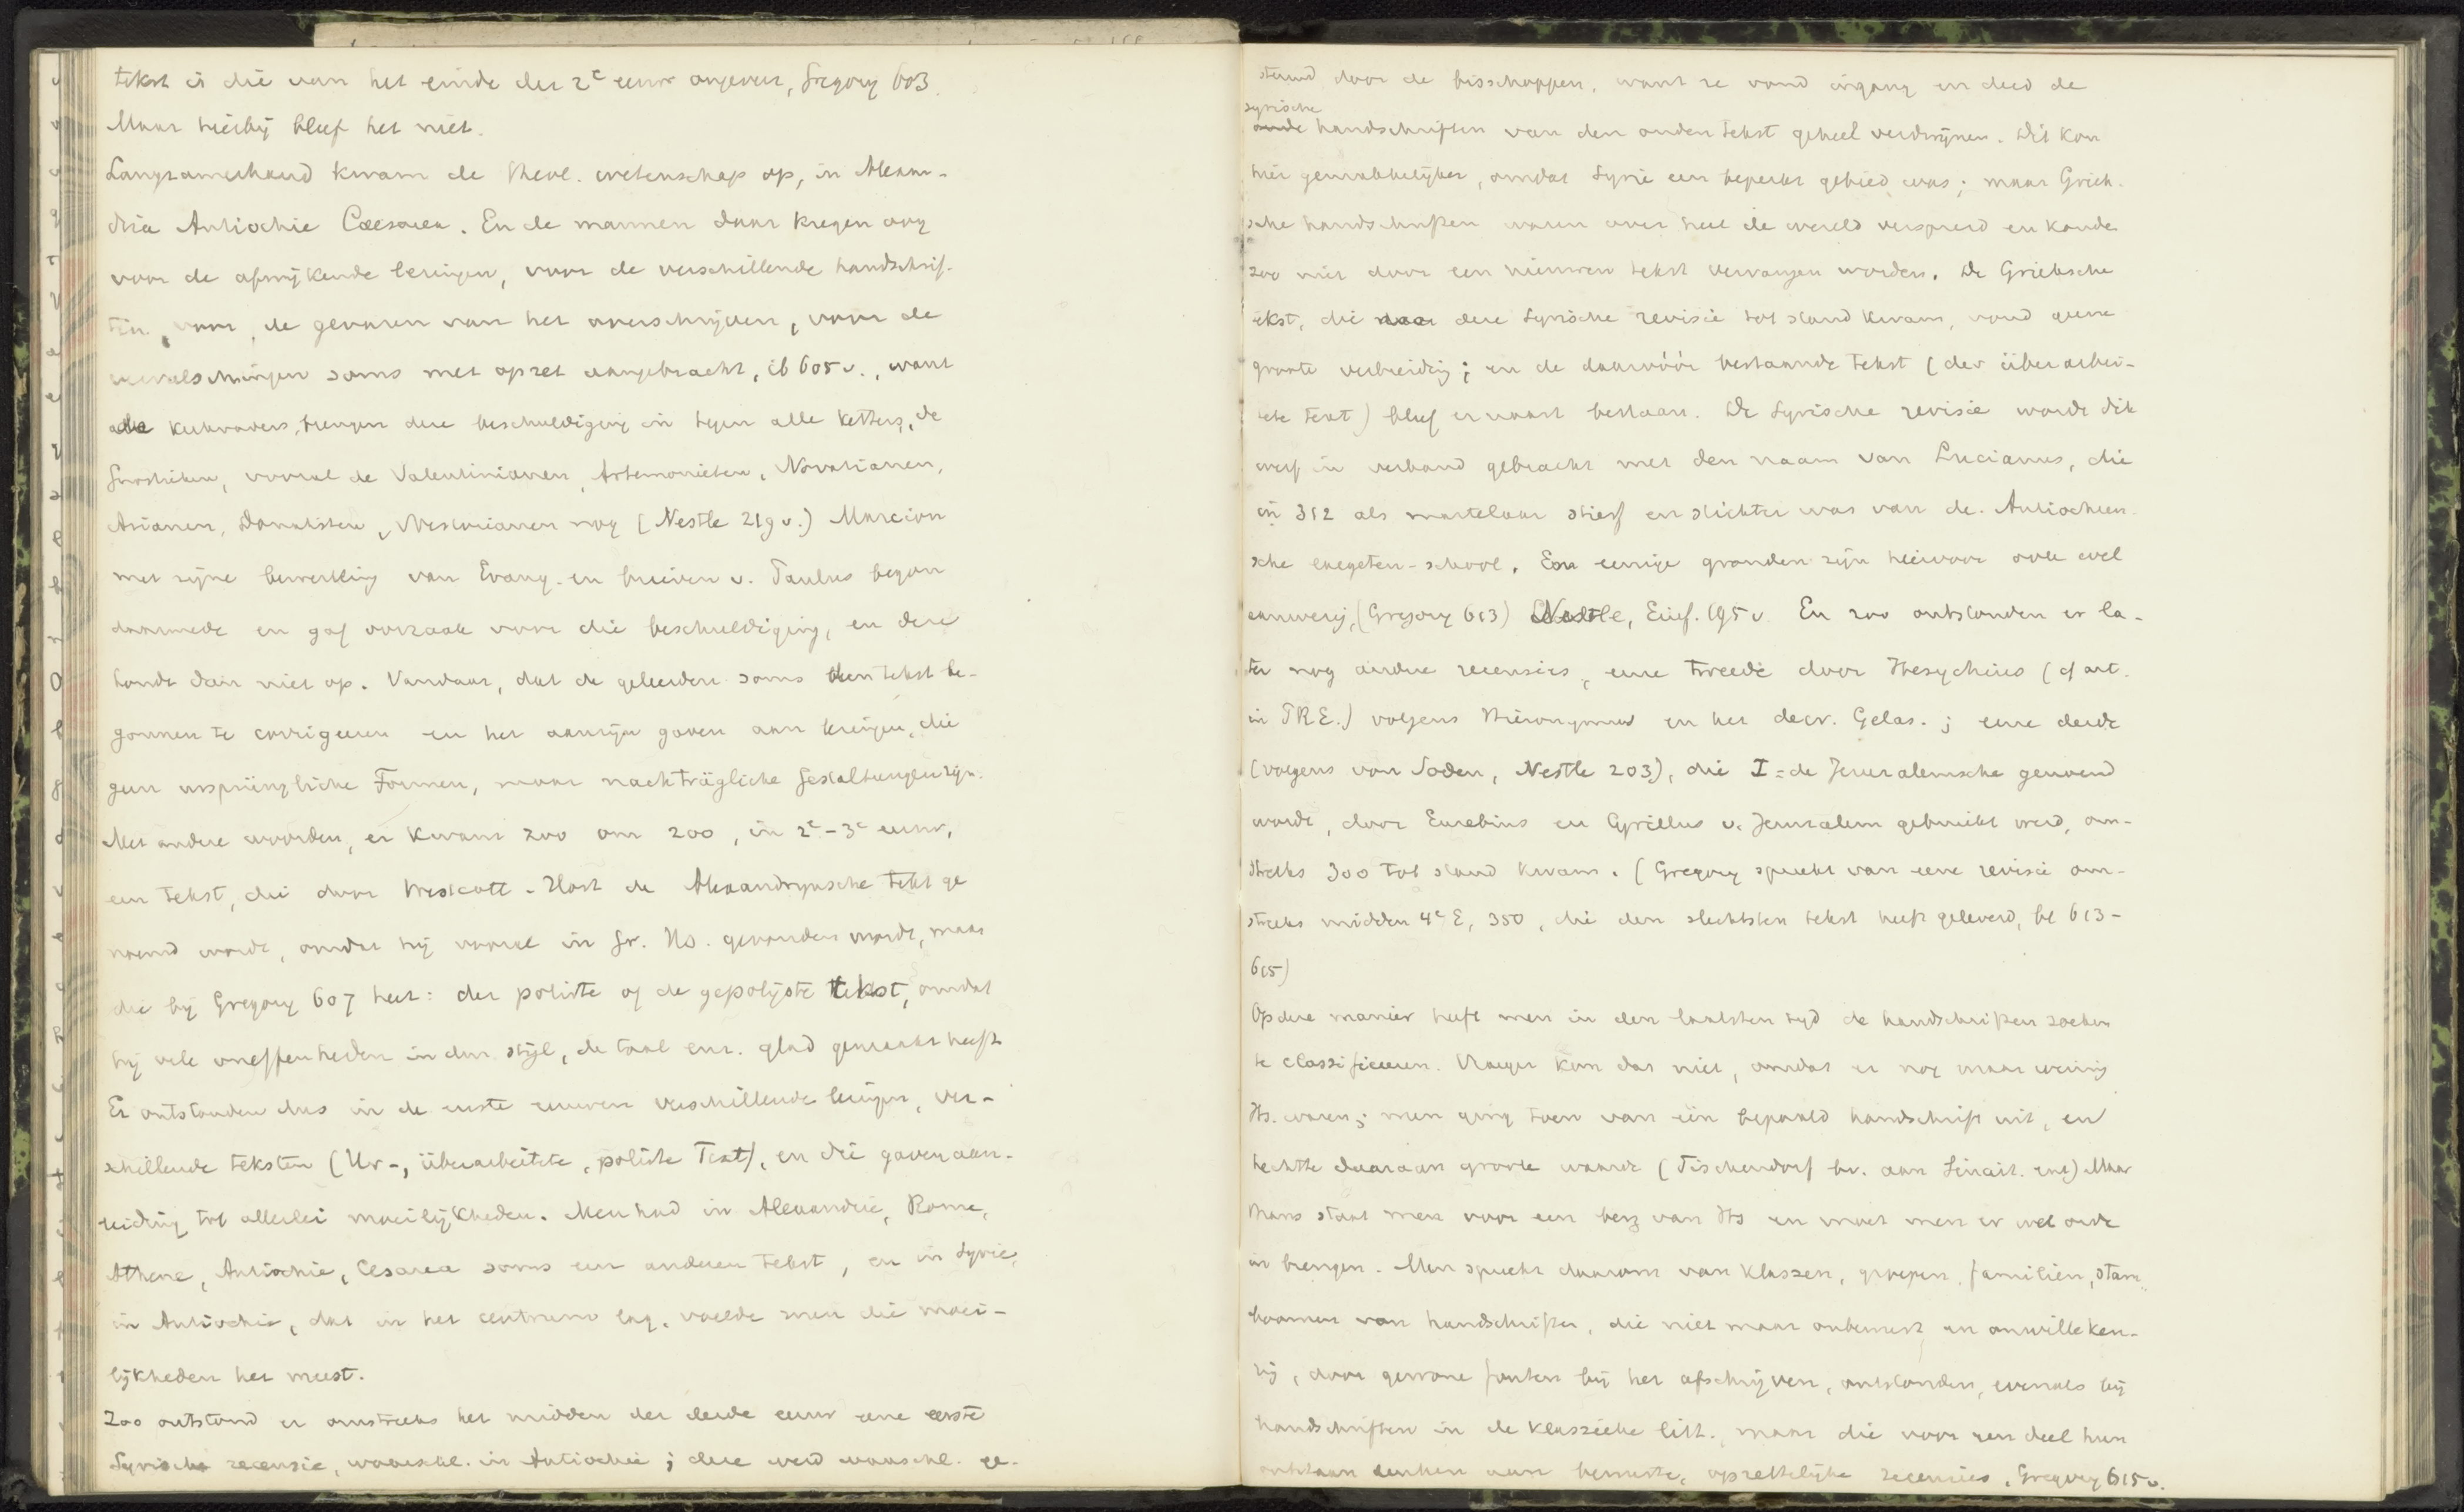 tekst is die van het einde der 2e eeuw ongeveer, Gregory 603.
Maar hierbij bleef het niet.
Langzamerhand kwam de theol. wetenschap op, in Alexan-
drië Antiochie Caesarea. En de mannen daar kregen oog
voor de afwijkende lezingen, voor de verschillende handschrif-
ten, voor de gevaren van het overschrijven, voor de
vervalschingen soms met opzet aangebracht, ib 605 v., want
alle kerkvaders brengen deze beschuldiging in tegen alle ketters, de
Gnostieken, vooral de Valentinianen, Artemonieten, Novatianen,
Arianen, Donatisten, Nestorianen nog (Nestle 219 v.) Marcion
met zijne bewerking van Evang. en brieven v. Paulus begon
daarmede en gaf oorzaak voor die beschuldiging, en deze
houdt dan niet op. Vandaar, dat de geleerden soms den tekst be-
gonnen te corrigeeren en het aanzijn gaven aan lezingen, die
geen ursprüngliche Formen, maar nachträgliche Gestaltungen zijn.
Met andere woorden, er kwam zoo om 200, in 2e-3e eeuw,
een tekst, die door Westcott-Hort de Alexandrynsche tekst ge
noemd wordt, omdat hij vooral in Gr. Hs. gevonden wordt, maar
die bij Gregory 607 heet: der polirte of de gepolijste tekst, omdat
hij vele oneffenheden in den stijl, de taal enz. glad gemaakt heeft
Er ontstonden dus in de eerste eeuwen verschillende lezingen, ver-
schillende teksten (Ur-, überarbeitete, polirte Text), en die gaven aan-
leiding tot allerlei moeilijkheden. Men had in Alexandrië, Rome,
Athene, Antiochie, Cesarea soms een anderen tekst, en in Syrië,
in Antiochie, dat in het centrum lag, voelde men die moei-
lijkheden het meest.
Zoo ontstond er omstreeks het midden der derde eeuw eene eerste
Syrische recensie, waarschl. in Antiochie; deze werd waarschl. ge-
steund door de bisschoppen, want ze vond ingang en deed de
syrische
oude handschriften van den ouden tekst geheel verdwijnen. Dit kon
hier gemakkelijker, omdat Syrië een beperkt gebied was; maar Griek-
sche handschriften waren over heel de wereld verspreid en konden
zoo niet door een nieuwen tekst vervangen worden. De Grieksche
tekst, die door deze Syrische revisie tot stand kwam, vond geene
groote verbreiding; en de daarvóór bestaande tekst (der überarbei-
tete Text) bleef ernaast bestaan. De Syrische revisie wordt dik
werf in verband gebracht met den naam van Lucianus, die
in 312 als martelaar stierf en stichter was van de Antiocheen-
sche exegeten-school. En eenige gronden zijn hiervoor ook wel
aanwezig, (Gregory 613) Nestle, Einf. 195 v. En zoo ontstonden er la-
ter nog andere recensies, eene tweede door Hesychius (cf art.
in PRE.) volgens Hieronymus en het decr. Gelas.; eene derde
(volgens von Soden, Nestle 203), die I = de Jeruzalemsche genoemd
wordt, door Eusebius en Cyrillus v. Jeruzalem gebruikt werd, om-
streeks 300 tot stand kwam. (Gregory spreekt van eene revisie om-
streeks midden 4e E, 350, die den slechtsten tekst heeft geleverd, bl 613-
615)
Op deze manier heeft men in den laatsten tijd de handschriften zoeken
te classificeeren. Vroeger kon dat niet, omdat er nog maar weinig
Hs. waren; men ging toen van één bepaald handschrift uit, en
hechtte daaraan groote waarde (Tischendorf bv. aan Sinait. enz) Maar
thans staat men voor een berg van Hs en moet men er wel orde
in brengen. Men spreekt daarom van klassen, groepen, familiën, stam-
boomen van handschriften, die niet maar onbewust en onwilleken-
rig, door gewone fouten bij het afschrijven, ontstonden, evenals bij
handschriften in de klassieke litt., maar die voor een deel hun
ontstaan danken aan bewuste, opzettelijke recensies, Gregory 615 v.